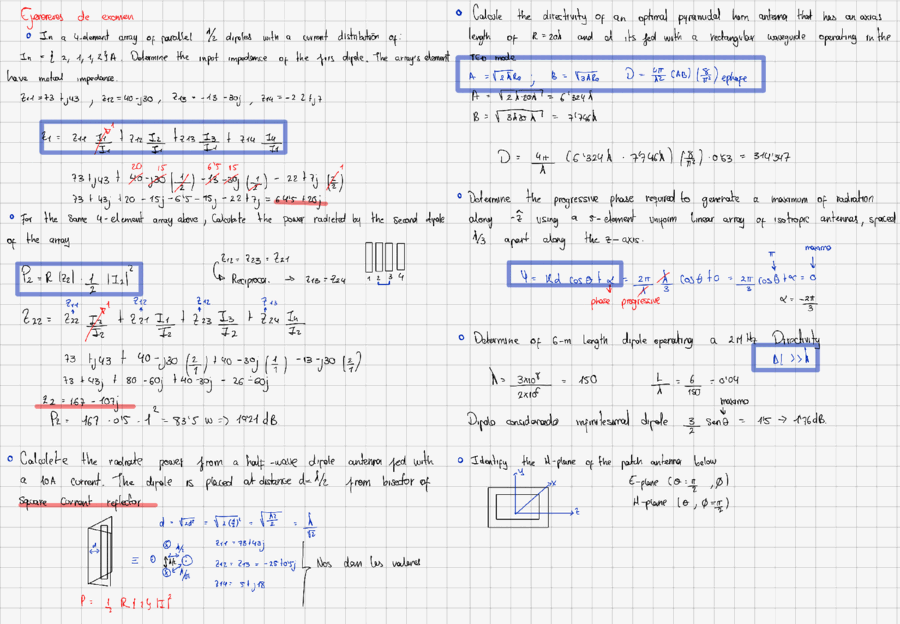 Ejercicios de examen
In a 4-element array of parallel λ/2 dipoles with a current distribution of:
In = { 2, 1, 1, 2 } A. Determine the input impedance of the firs dipole. The arrays element
have mutual impedance.
Z11 = 73 + j43 , Z12 = 40 - j30 , Z13 = -13 - 30j , Z14 = -22 + 7j
Z1 = Z11 I1/I1 + Z12 I2/I1 + Z13 I3/I1 + Z14 I4/I1
20 15 6'5 15 1
73 + j43 + 40 - j30 (1/2) - 13 - 30j (1/2) - 22 + 7j (2/2)
73 + 43j + 20 - 15j - 6'5 - 15j - 22 + 7j = 64'5 + 20j
For the same 4-element array above, Calculate the power radicted by the second dipole
of the array
P2 = R |Z2| · 1/2 |I2|²
Z12 = Z23 = Z21
Reciproca. → Z13 = Z24
1 2 3 4
Z11 Z12 Z12 Z13
Z22 = Z22 I2/I2 + Z21 I1/I2 + Z23 I3/I2 + Z24 I4/I2
73 + j43 + 40 - j30 (2/1) + 40 - 30j (1/1) - 13 - j30 (2/1)
73 + 43j + 80 - 60j + 40 - 30j - 26 - 60j
Z2 = 167 - 107j
P2 = 167 · 0'5 · 1² = 83'5 W => 19'21 dB
Calculate the radiate power from a half-wave dipole antenna fed with
a 10A current. The dipole is placed at distance d = λ/2 from bisector of
square corront reflector
Z11 = 73 + 43j
Nos dan los valores
Calcule the directivity of an optimal pyramidal horn antenna that has an axias
length of R = 20λ and at its fed with a rectangular waveguide operating in the
TE10 mode
A = √2λR0 ; B = √3λR0 D = 4π/λ² (AB) (8/π²) ephase
A = √2λ·20λ = 6'324λ
B = √3λ20λ = 7'746λ
D = 4π/λ (6'324λ · 7'746λ) (8/π²) · 0'63 = 314'347
Determine the progressive phase required to generate a maximum of radiation
along -ẑ using a 5-element uniform linear array of isotropic antennas, spaced
λ/3 apart along the z-axis.
π maximo
Ψ = kd cosθ + α = 2π/λ λ/3 cosθ + 0 = 2π/3 cosθ + α = 0
phase progressive
α = -2π/3
Determine of 6-m length dipole operating a 2MHz Directivity
λ = 3x10⁸/2x10⁶ = 150
L/λ = 6/150 = 0'04
maximo
Dipolo considerando infinitesimal dipole 3/2 senθ = 1'5 → 1'76 dB.
Identify the H-plane of the patch antenna below
y
x
z
E-plane (θ = π/2 , Ø)
H-plane (θ , Ø = π/2)